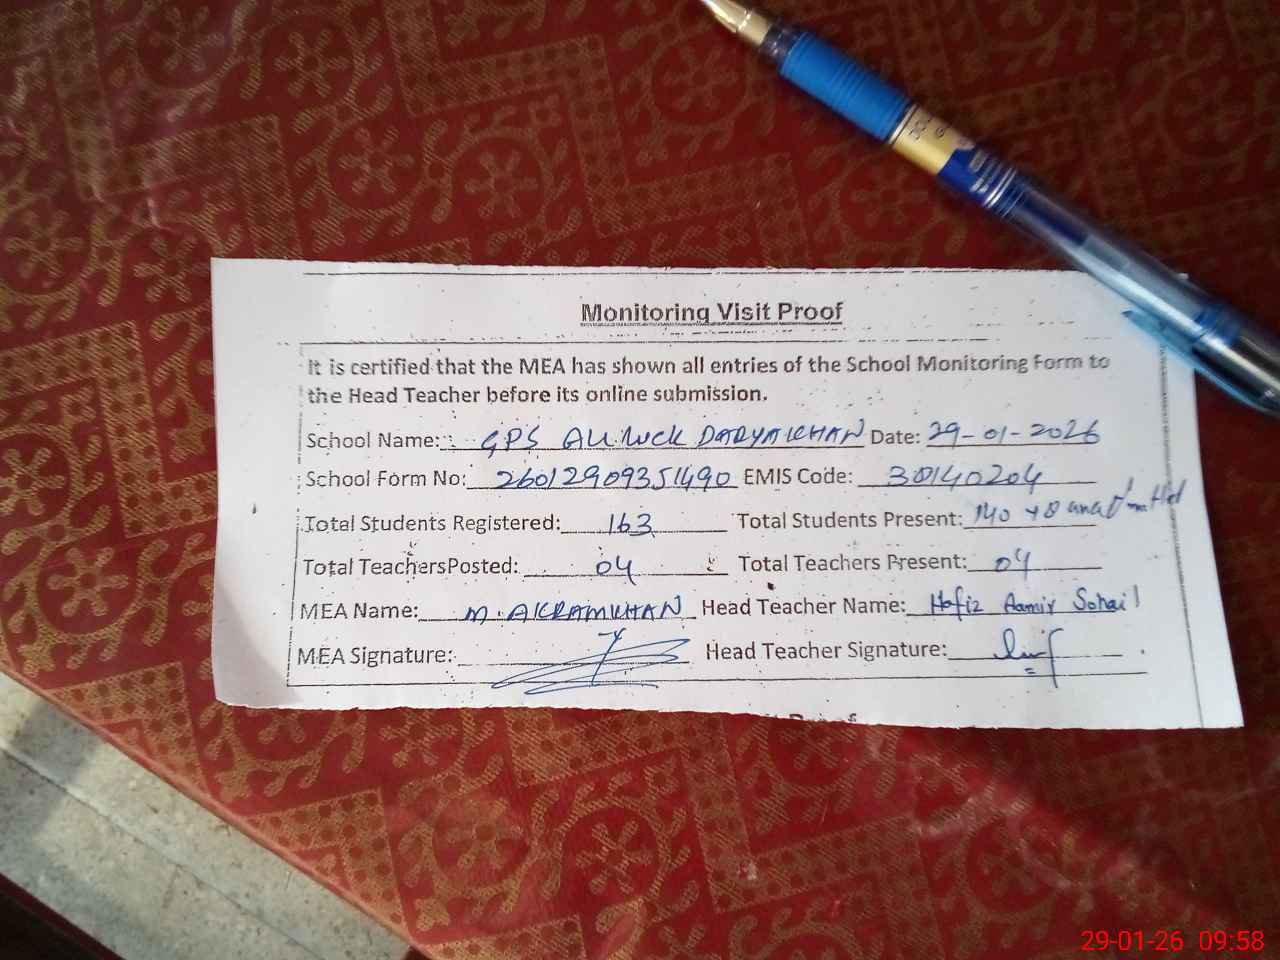 Monitoring Visit Proof
It is certified that the MEA has shown all entries of the School Monitoring Form to
the Head Teacher before its online submission.
School Name: GPS DARYAKHAN Date: 29-01-2026
School Form No: 26012909351490 EMIS Code: 38140204
Total Students Registered: 163 Total Students Present: 140 +8
Total TeachersPosted: 04 Total Teachers Present: 04
MEA Name: M. AKRAM KHAN Head Teacher Name: Hafiz Aamir Sohail
MEA Signature: Head Teacher Signature:
29-01-26 09:58